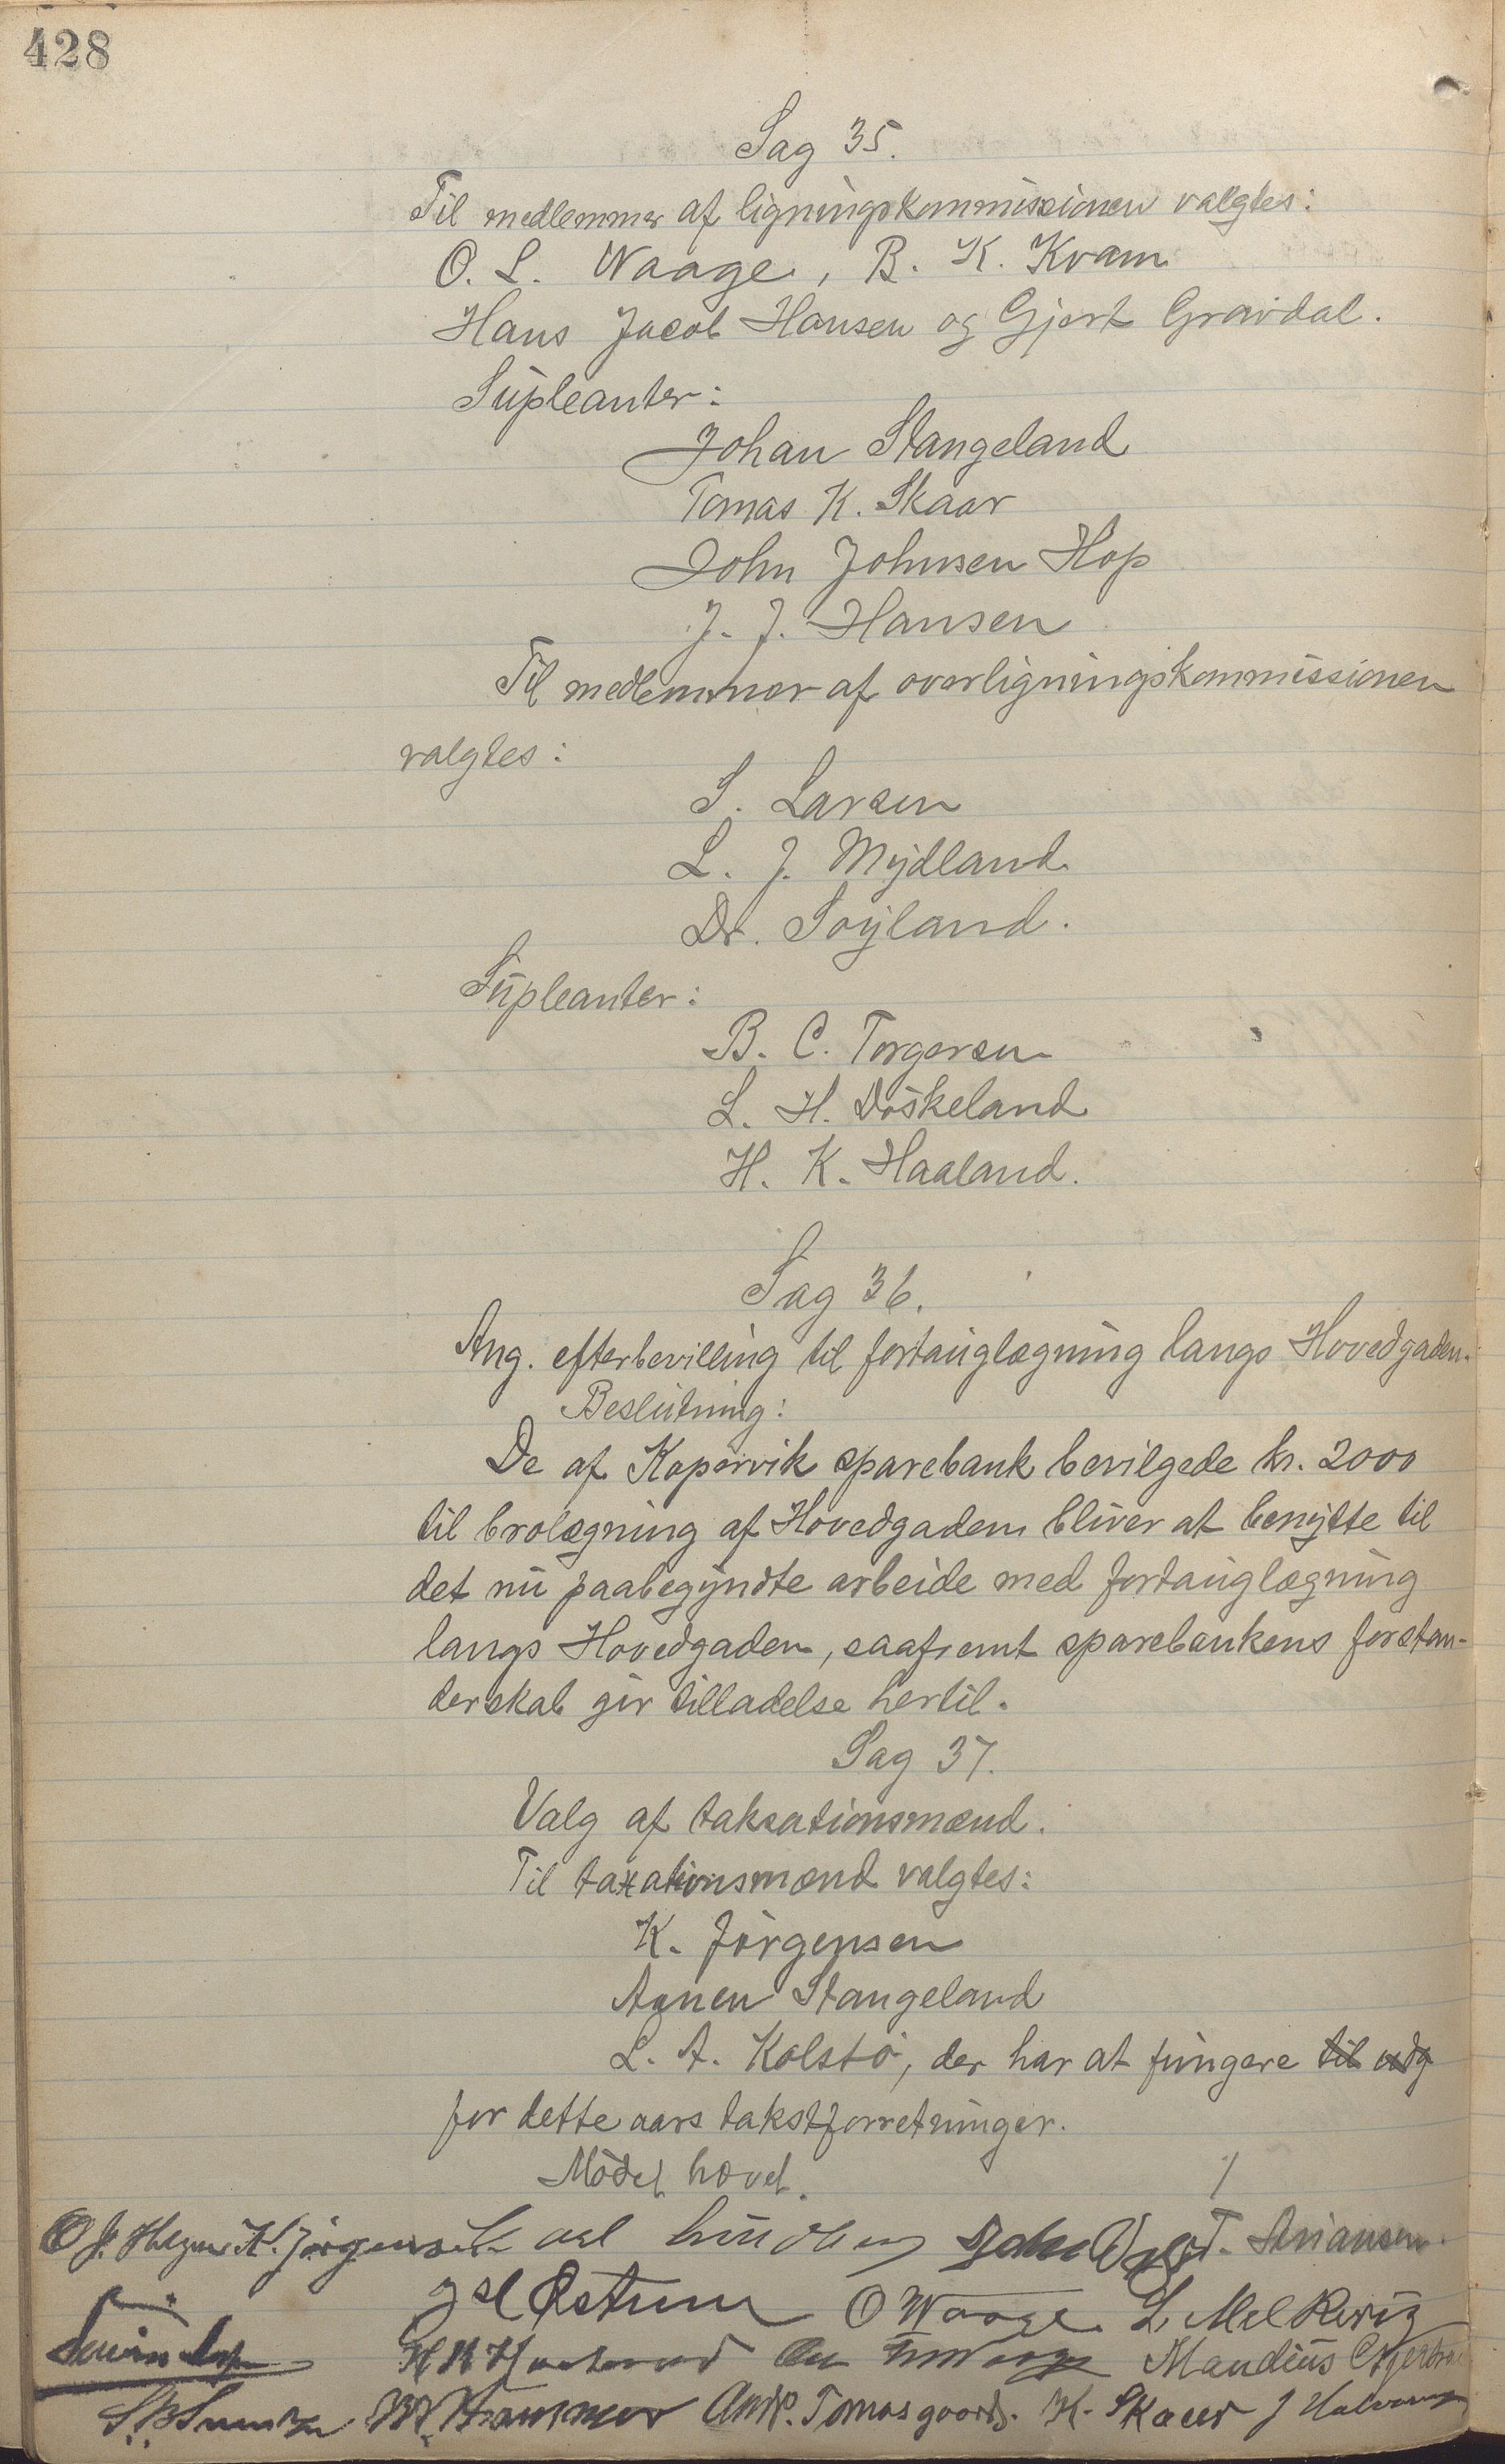 428
Sag 35.
Til medlemmer af ligningskommissionen valgtes:
O. L. Waage, B. K. Kvam
Hans Jacob Hansen og Gjert Gravdal.
Supleanter:
Johan Stangeland
Tomas K. Skaar
John Johnsen Hop
J. J. Hansen
Til medlemmer af overligningskommissionen
valgtes:
S. Larsen
L. J. Mydland
Dr. Søyland.
Supleanter:
B. C. Torgersen
L. H. Døskeland
H. K. Haaland.
Sag 36.
Ang. efterbevilling til fortauglægning langs Hovedgaden.
Beslutning:
De af Kopervik sparebank bevilgede kr. 2000
til brolægning af Hovedgaden bliver at benytte til
det nu paabegyndte arbeide med fortauglægning
langs Hovedgaden, saafremt sparebankens forstan-
derskab gir tilladelse hertil.
Sag 37.
Valg af taksationsmænd.
Til taxationsmænd valgtes:
K. Jørgensen
Aanen Stangeland
L. A. Kolstø, der har at fungere til udg
for dette aars takstforretninger.
Mødet hævet.
K. Jørgensen
Østrem O Waage L. Melkevig
Mandius
Andr. Tomasgaard. K. Skaar J